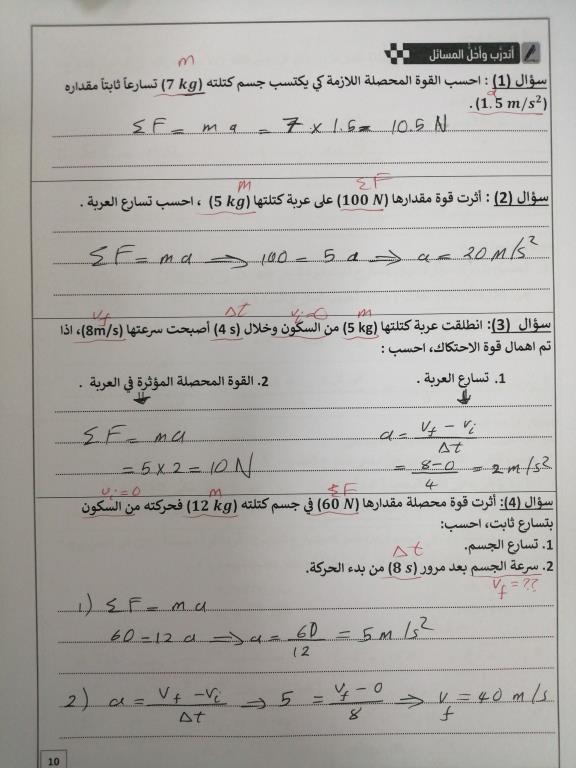 أتدرَّب وأحُلُّ المسائل
m
سؤال (1) : احسب القوة المحصلة اللازمة كي يكتسب جسم كتلته (7 kg) تسارعاً ثابتاً مقداره
a
(1.5 m/s²).
ΣF = m a = 7 × 1.5 = 10.5 N
m ΣF
سؤال (2) : أثرت قوة مقدارها (100 N) على عربة كتلتها (5 kg) ، احسب تسارع العربة .
ΣF = m a ⇒ 100 = 5 a ⇒ a = 20 m/s²
vf Δt vi=0 m
سؤال (3): انطلقت عربة كتلتها (5 kg) من السكون وخلال (4 s) أصبحت سرعتها (8m/s)، اذا
تم اهمال قوة الاحتكاك، احسب :
1. تسارع العربة .
2. القوة المحصلة المؤثرة في العربة .
a = (vf − vi)/Δt
= (8−0)/4 = 2 m/s²
ΣF = m a
= 5 × 2 = 10 N
vi = 0 m ΣF
سؤال (4): أثرت قوة محصلة مقدارها (60 N) في جسم كتلته (12 kg) فحركته من السكون
بتسارع ثابت، احسب:
1. تسارع الجسم.
Δt
2. سرعة الجسم بعد مرور (8 s) من بدء الحركة.
vf = ??
1) ΣF = m a
60 = 12 a ⇒ a = 60/12 = 5 m/s²
2) a = (vf − vi)/Δt ⇒ 5 = (vf − 0)/8 ⇒ vf = 40 m/s
10